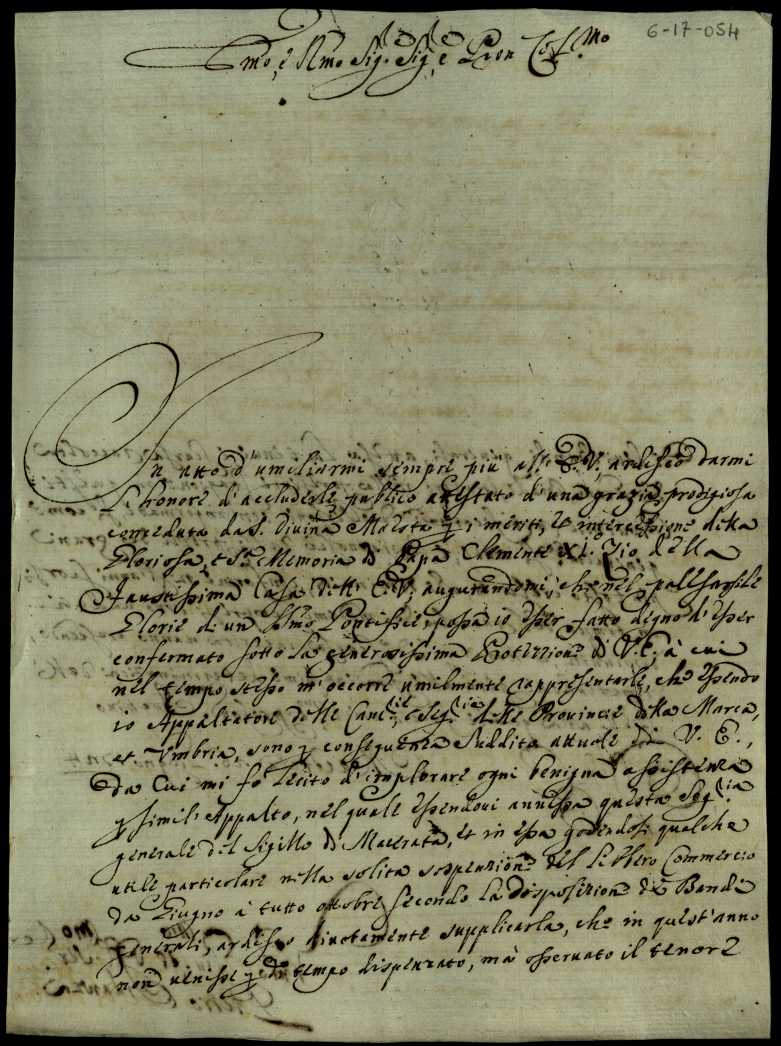 6-17-054
Emo, e Rmo Sig.r Sig.r, e Pron Col.mo
In atto d'umiliarmi sempre più all'E.V., ardisco darmi
l'honore d'accluderle publico attestato d'una grazia prodigiosa
conceduta da S. Divina Maestà p i meriti, et intercessione della
Gloriosa, e S.ta Memoria di Papa Clemente XI. Zio della
Faustissima Casa dell'E.V., augurandomi, che nel palesarsi le
Glorie di un Smo Pontefice, possa io esser fatto degno d'esser
confermato sotto la generosissima Protezione di V.E. à cui
nel tempo stesso m'occorre umilmente rappresentarle, che essendo
io Appaltatore delle Canc.rie e Seg.rie delle Provincie della Marca,
et Umbria, sono p conseguenza suddito attuale di V. E.,
da cui mi fo lecito d'implorare ogni benigna assistenza
p simil' Appalto, nel quale essendovi annessa questa Seg.ria
generale del Sigillo di Macerata, et in essa godendosi qualche
utile particolare nella solita sospenzione del libero Commercio
da Giugno à tutto ottobre secondo la disposizione de Bandi
generali, ardisco divotamente supplicarla, che in quest'anno
non venisse p di tempo dispenzato, mà osservato il tenore